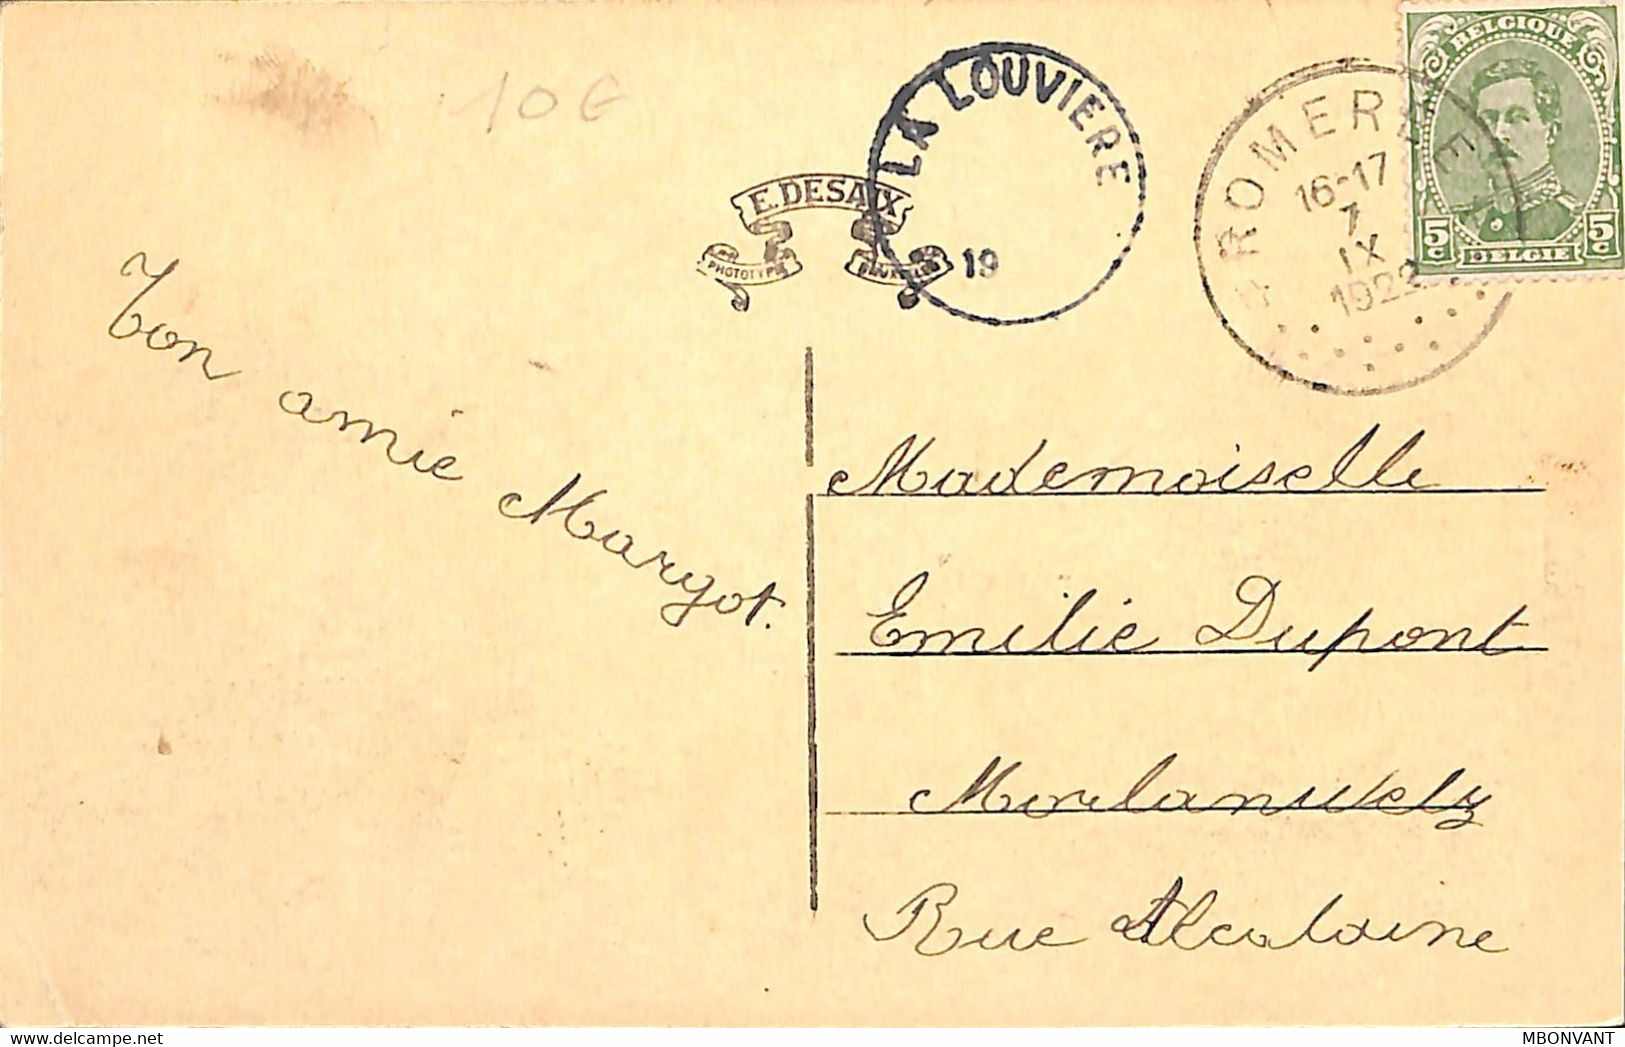 10€
E. DESAIX
PHOTOTYPIE
BRUXELLES
LA LOUVIERE
19
ROMERÉE
16-17
7
IX
1922
BELGIQUE
5c 5c
BELGIE
Ton amie Margot.
Mademoiselle
Emilie Dupont
Morlanwelz
Rue
delcampe.net
MBONVANT